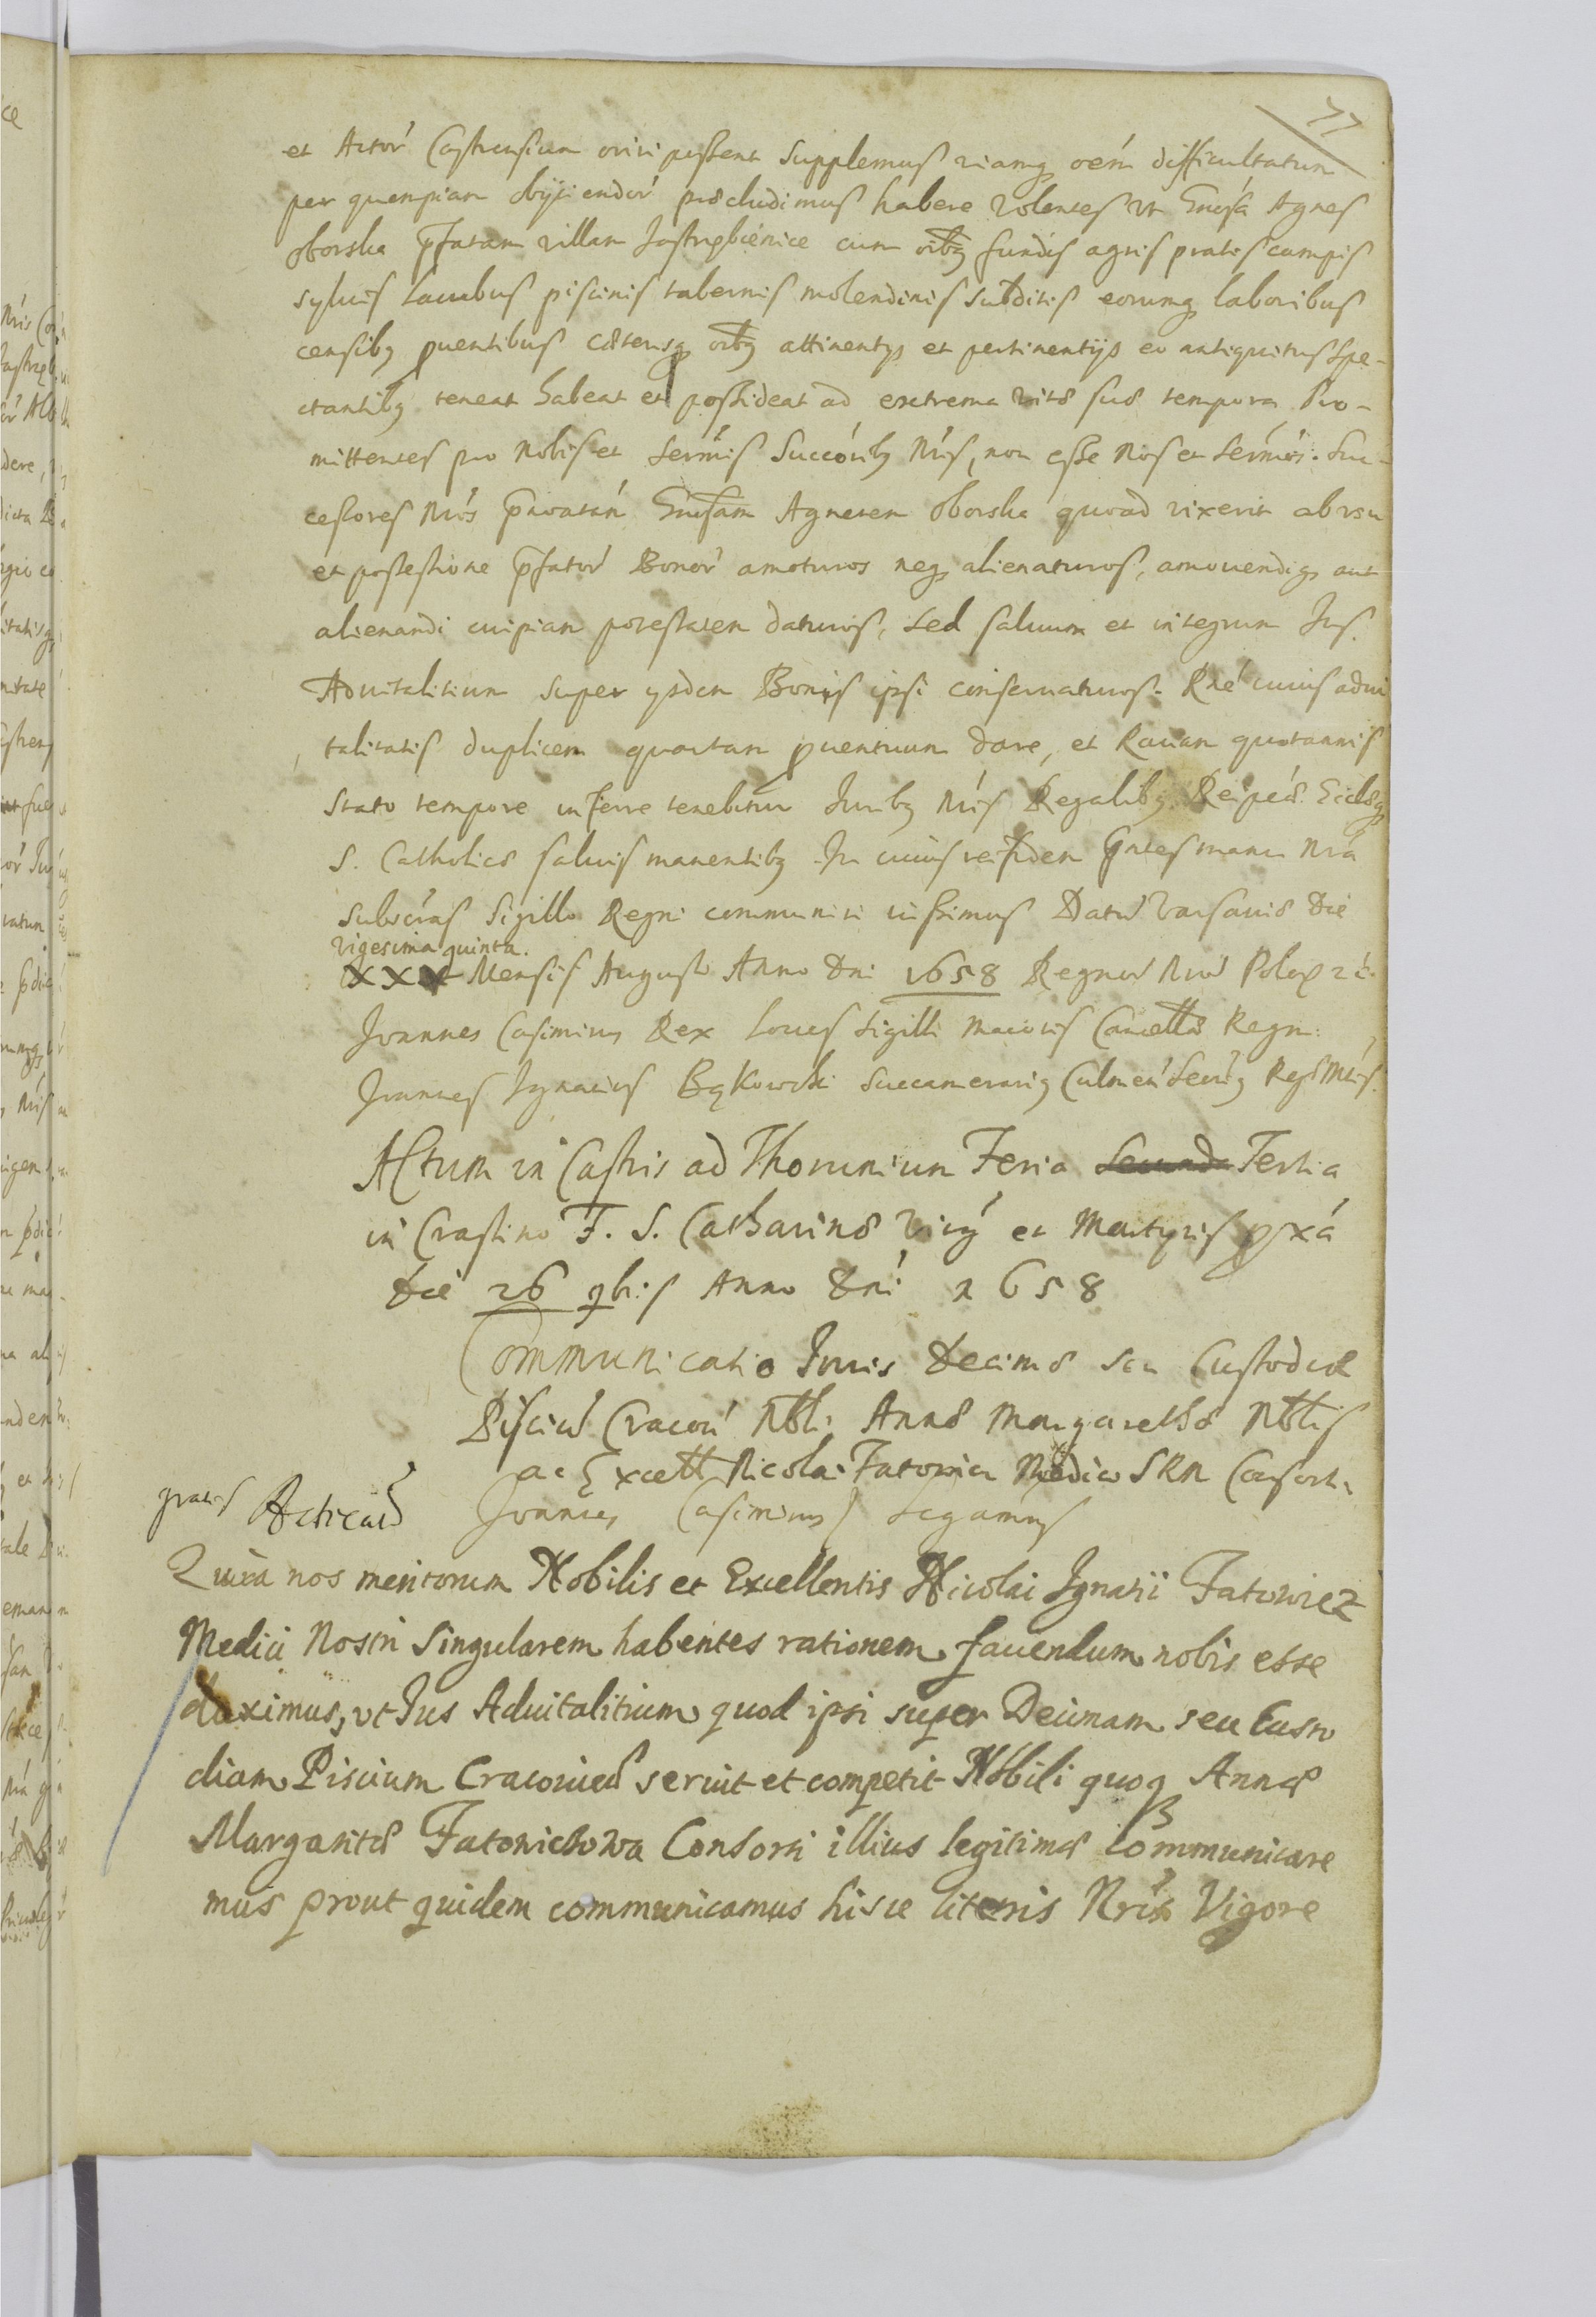 77
et Actor Castrensium oriri possent supplemus viamq oem difficultatum
per quempiam obijciendor præcludimus habere volentes ut Gnosa Agnes
Oborska pfatam villam Jastrzębienice cum oibq fundis agris pratis campis
syluis lacubus piscinis tabernis molendinis subditis eorumq laboribus
censibq puentibus cæterisq oibq attinentijs et pertinentijs eo antiquitus spe-
ctantibq teneat habeat et possideat ad extrema vitæ suæ tempora Pro-
mittentes pro Nobis et Sermis Succoribq Nris, non esse Nos et Sermos. Suc-
cessores Nros pnoatam Gnosam Agnetem Oborska quoad vixerit ab usu
et possessione pfator Bonor amoturos neq alienaturos, amouendiq aut
alienandi cuipiam potestatem daturos, sed saluum et integrum Jus
Aduitalitium super ijsdem Bonis ipsi conseruaturos. Rne cuius adui
talitatis duplicem quartam puentuum dare, et Rauam quotannis
stato tempore inferre tenebitur Juribq Nris Regalibq Reipcæ Eccleæq
S. Catholicæ saluis manentibq In cuius rei fidem pntes manu Nra
subscras Sigillo Regni communiri iussimus Datu Varsauiæ Die
vigesima quinta.
XXV Mensis Augusti Anno Dni 1658 Regnor Nror Polo 
Joannes Casimirus Rex Locus Sigilli Maioris Cancellæ Regni
Joannes Ignatius Bąkowski Succamerariq Culmen Secrq Regæ Mtis
Actum in Castris ad Thorunium Feria Secunda Tertia
in Crastino F. S. Catharinæ Virg et Martyris pxa
Die 26 9bris Anno Dni 1658
Communicatio Juris Decimæ seu Custodiæ
Pisciu Cracou Nbli Annæ Margarethæ Nblis
ac Excell Nicolai Fatowicz Medico SRM Consorti
gratis Acticat Joannes Casimirus Legamus
Quia nos meritorum Nobilis et Excellentis Nicolai Ignatii Fatowicz
Medici Nostri Singularem habentes rationem fauendum nobis esse
duximus, ut Jus Aduitalitium quod ipsi super Decimam seu Custo
diam Piscium Cracouien seruit et competit Nobili quoq Annæ
Margaritæ Fatowiczowa Consorti illius legitimæ communicare
mus prout quidem communicamus hisce literis Nris Vigore